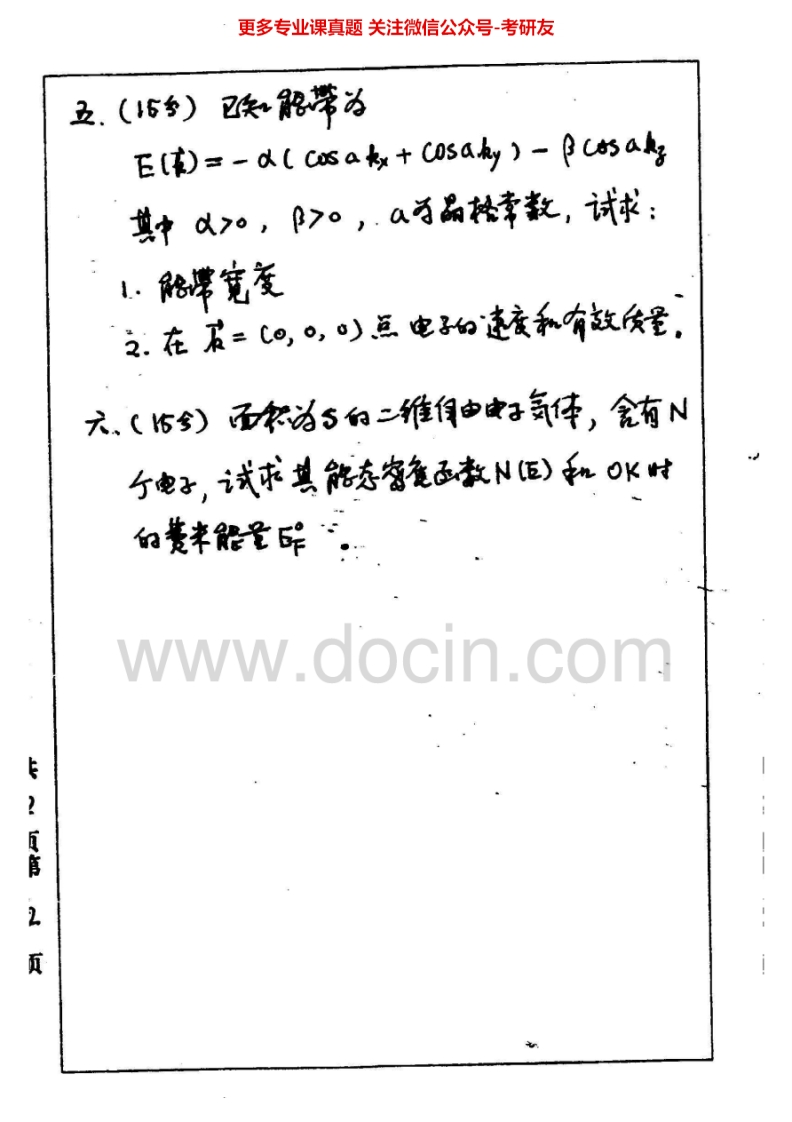 更多专业课真题 关注微信公众号-考研友
五、(15分) 已知能带为
E(k⃗)=-α(cosakx+cosaky)-βcosakz
其中 α>0, β>0, a为晶格常数, 试求:
1. 能带宽度
2. 在 k⃗=(0,0,0)点电子的速度和有效质量。
六、(15分) 面积为S的二维自由电子气体, 含有N
个电子, 试求其能态密度函数N(E)和 0K时
的费米能量E_F^0。
www.docin.com
共
2
页
第
2
页